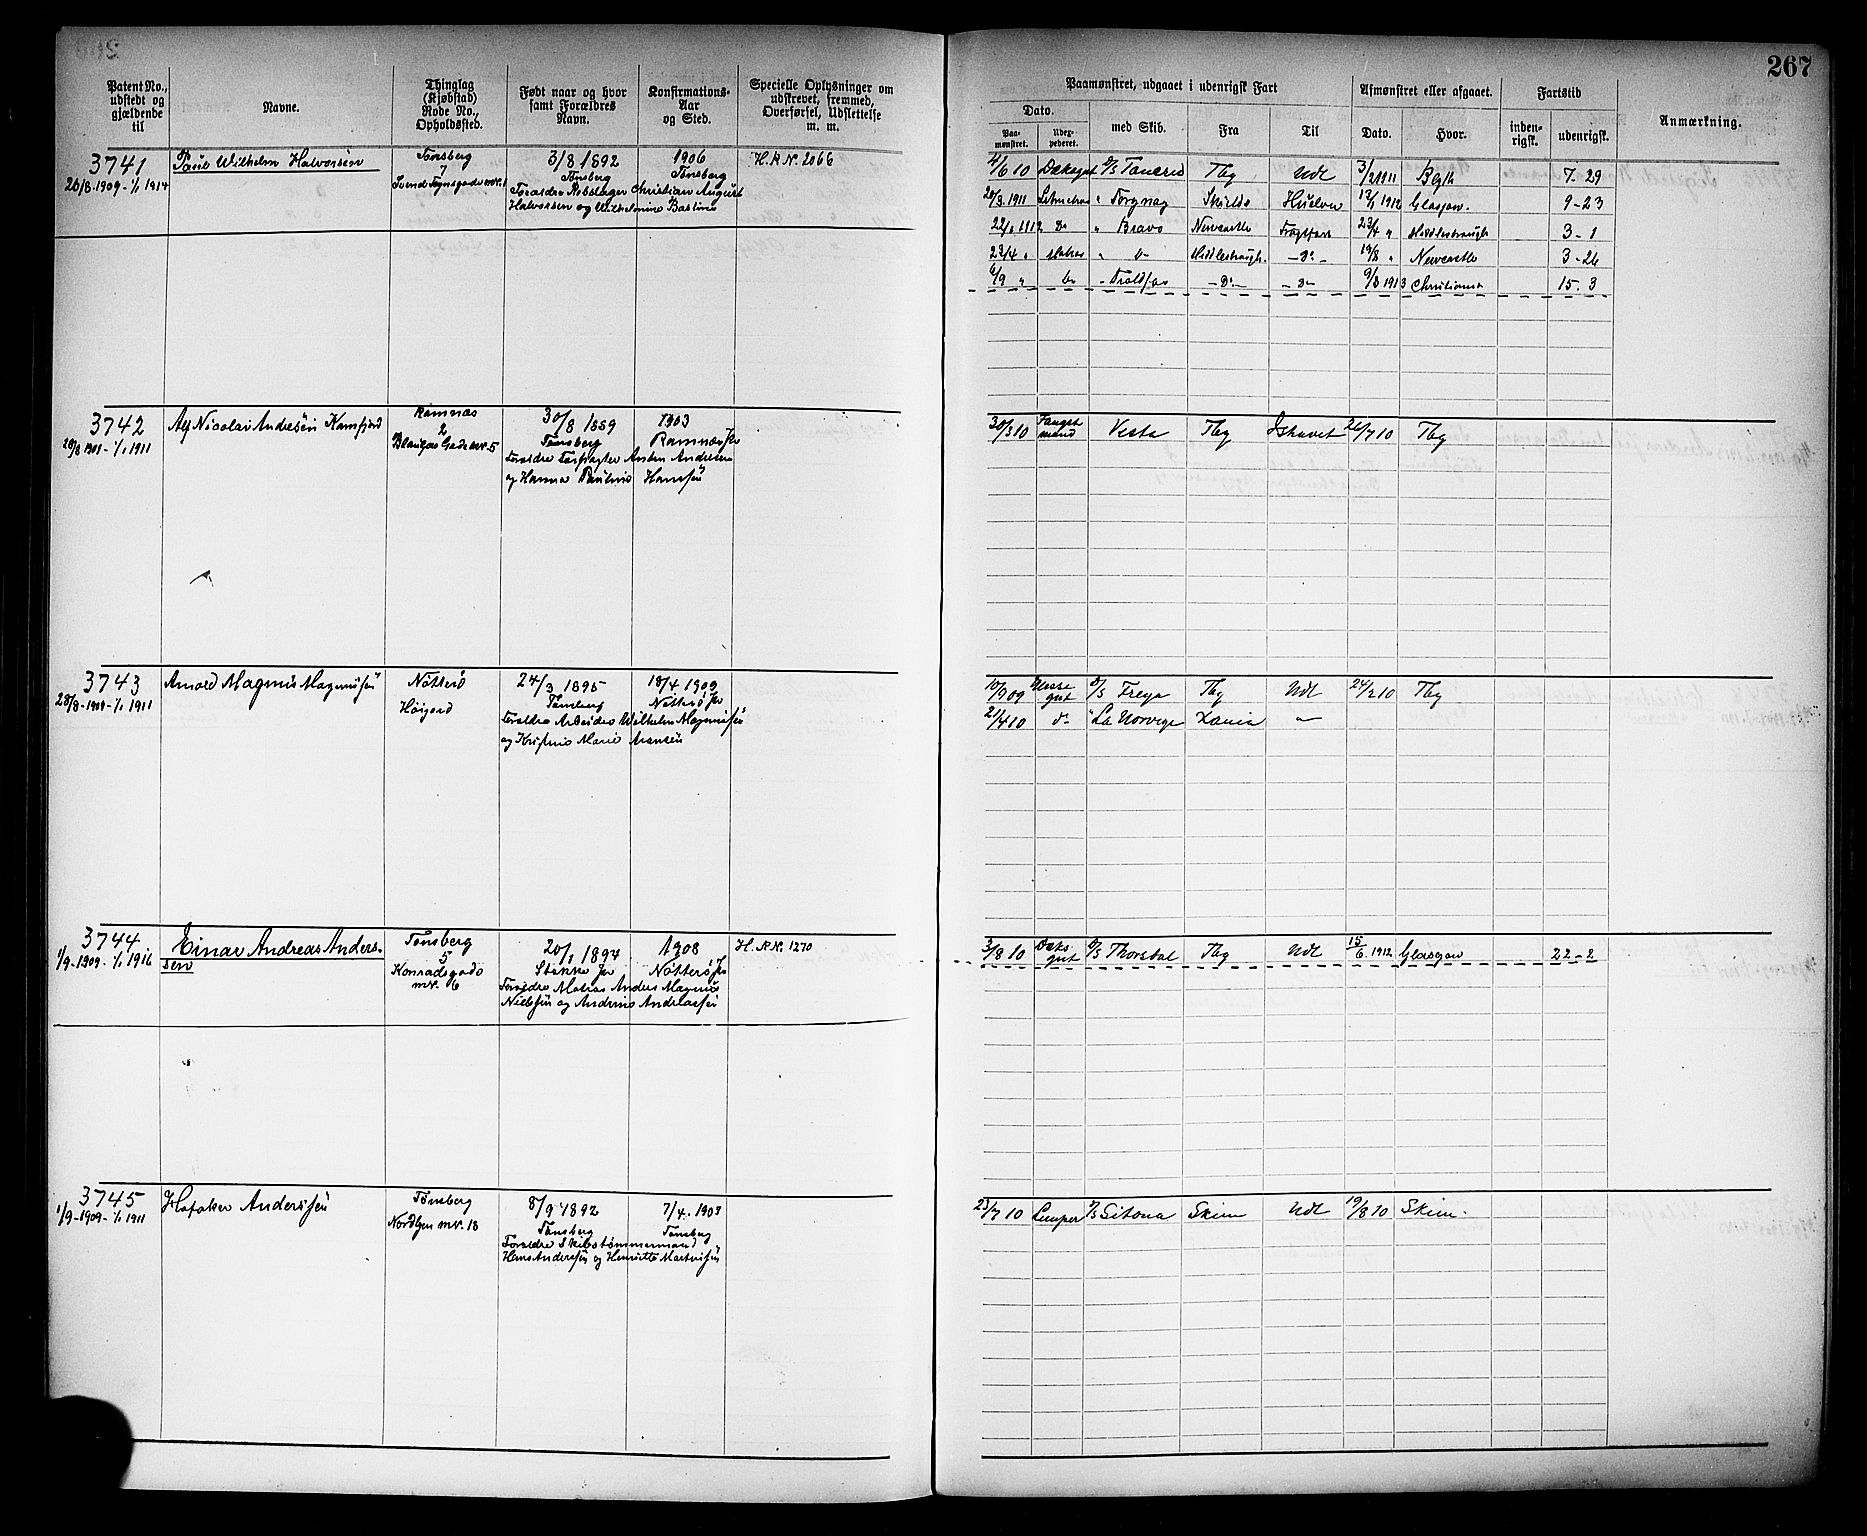 267
Patent No., udstedt og gjældende til
Navne.
Thinglag (Kjøbstad) Rode No., Opholdssted.
Født naar og hvor samt Forældres Navn.
Konfirmations-Aar og Sted.
Specielle Oplysninger om udskrevet, fremmed, Overførsel, Udslettelse m. m.
Paamønstret, udgaaet i udenrigsk Fart
Dato.
Paamønstret.
med Skib.
Fra
Til
Afmønstret eller afgaaet.
Dato.
Hvor.
Fartstid
indenrigsk.
udenrigsk.
Anmærkning.
3741
26/8-1909-1/1 1914
Paul Wilhelm Halvorsen
Tønsberg
7
Svend Foynsgade nr. 1
3/8 1892
Tønsberg
Forældre Rebslager Christian August
Halvorsen og Wilhelmine Basline
1906
Tønsberg
H. R. N. 2066
4/6 10 Dæksgut D/S Tancred Tbg Udt 3/2 1911 Blyth 7-29
20/3 1911 Letmatros " Torgnag Skields Huelva 13/1 1912 Glasgow. 9-23
22/1 1912 Do " Bravo Newcastle Fragtfart 23/4 " Middlesbrough 3-1
23/4 " Matros " Do Middlesbrough. -Do- 19/8 " Newcastle 3-26
6/9 " Do - Troldfos -Do- -Do- 9/8 1913 Christiania 15-3
3742
28/8 1909-1/1 1911
Alf Nicolai Andresen Kamfjord
Ramnæs
2
Gade nr. 5
30/8 1889
Tønsberg
Forældre Anton Andresen
og Hanna Pauline Hansen
1903
Ramnæs
30/3 10 Fangstmand Vesta Tbg Ishavet 26/7 10 Tbg
3743
28/8-1909-1/1 1911
Arnold Magnus Magnussen
Nøtterø
Høigord
24/3 1895
Tønsberg
Forældre Arbeider Wilhelm Magnussen
og Kristine Marie Aransen
18/4 1909
Nøtterø
10/9 09 Messegut D/S Freya Tbg Udt 24/2 10 Tbg
21/4 10 do " La Norvege Xania "
3744
1/9-1909-1/1 1916
Einar Andreas Anders-
sen
Tønsberg
5
Konradsgade
nr. 6
20/1 1894
Stokke
Forældre Matros Anders Magnus
Nielsen og Andrine Andreassen
1908
Nøtterø
H. R. N. 1270
3/8 10 Dæksgut D/S Thorsdal Tbg Udt 15/6 1912 Glasgow 22-2
3745
1/9-1909-1/1 1911
Håfaker Anderssen
Tønsberg
Nordbyen nr. 18
8/9 1892
Tønsberg
Forældre Skibstømmermand
Hans Anderssen og Henriette Martinsen
7/4. 1907
Tønsberg
23/7 10 Lemper D/S Sitona Skien Udt 19/8 10 Skien.